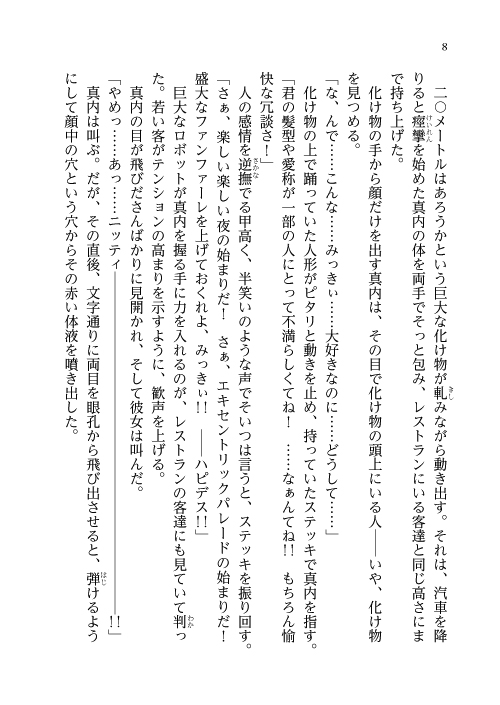 8
二〇メートルはあろうかという巨大な化け物が軋みながら動き出す。それは、汽車を降
りると痙攣を始めた真内の体を両手でそっと包み、レストランにいる客達と同じ高さにま
で持ち上げた。
化け物の手から顔だけを出す真内は、その目で化け物の頭上にいる人――いや、化け物
を見つめる。
「な、んで……こんな……みっきぃ……大好きなのに……どうして……」
化け物の上で踊っていた人形がピタリと動きを止め、持っていたステッキで真内を指す。
「君の髪型や愛称が一部の人にとって不満らしくてね！　……なぁんてね!!　もちろん愉
快な冗談さ！」
人の感情を逆撫でる甲高く、半笑いのような声でそいつは言うと、ステッキを振り回す。
「さぁ、楽しい楽しい夜の始まりだ！　さぁ、エキセントリックパレードの始まりだ！
盛大なファンファーレを上げておくれよ、みっきぃ!!　――ハピデス!!」
巨大なロボットが真内を握る手に力を入れるのが、レストランの客達にも見ていて判っ
た。若い客がテンションの高まりを示すように、歓声を上げる。
真内の目が飛びださんばかりに見開かれ、そして彼女は叫んだ。
「やめっ……あっ……ニッティ――――――――――――――――――――!!」
真内は叫ぶ。だが、その直後、文字通りに両目を眼孔から飛び出させると、弾けるよう
にして顔中の穴という穴からその赤い体液を噴き出した。